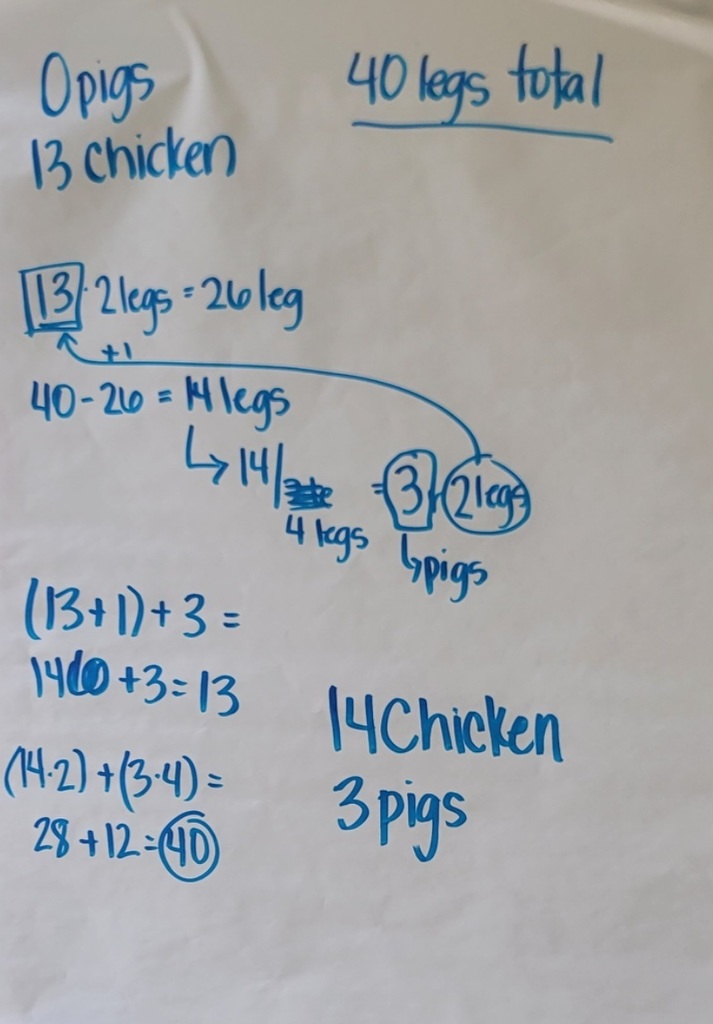 0 pigs
40 legs total
13 chicken
13 · 2 legs = 26 leg
+1
40 - 26 = 14 legs
14/ = 3 · 2 legs
4 legs
pigs
(13+1)+3 =
14 +3=13
14 Chicken
(14·2)+(3·4)=
3 pigs
28+12=40